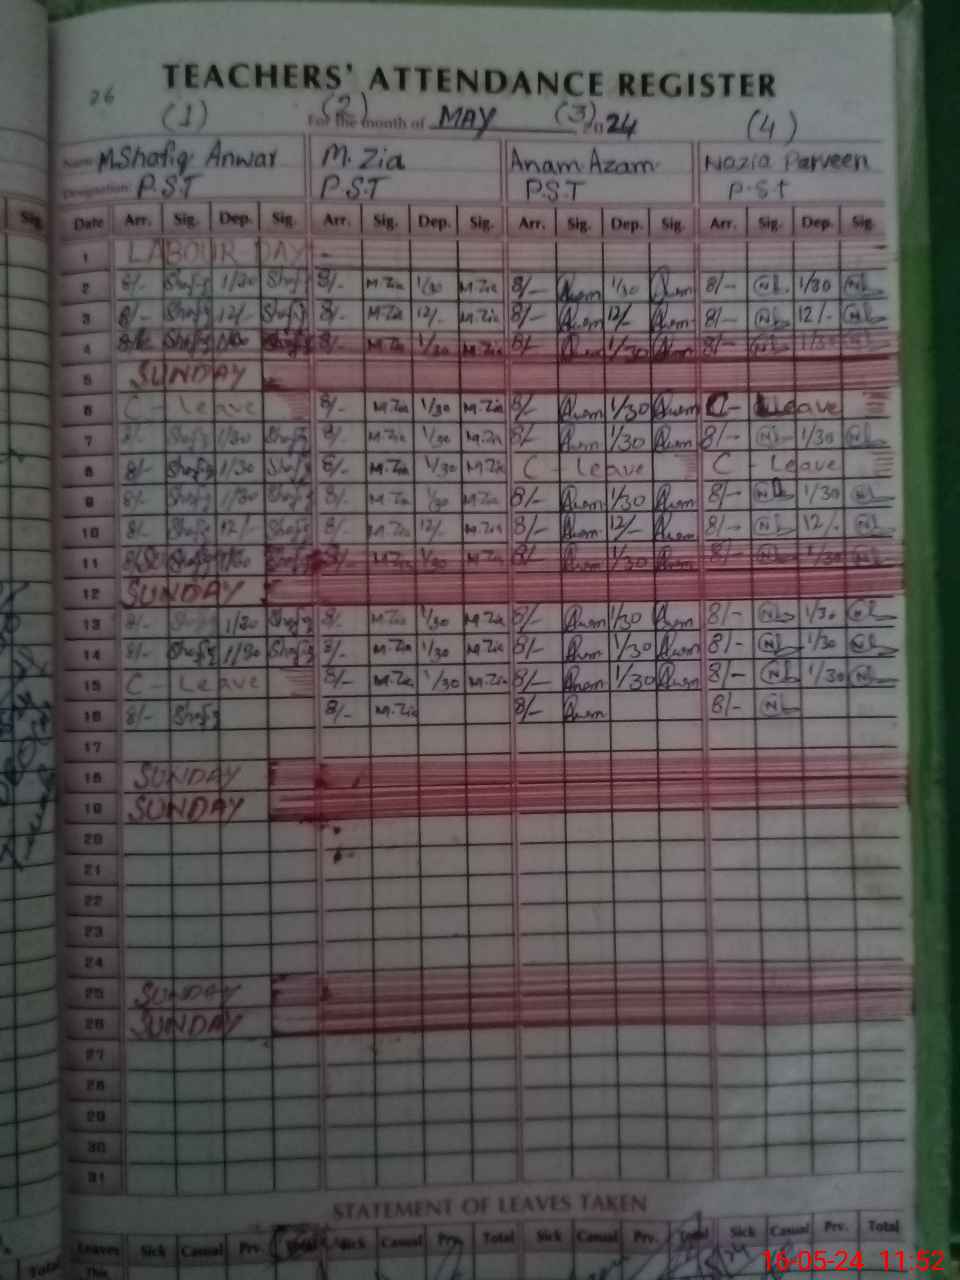 TEACHERS' ATTENDANCE REGISTER
26
(1) (2) (3) (4)
For the month of MAY 24
Name M.Shafiq Anwar M. Zia Anam Azam Nazia Parveen
Designation P.S.T P.S.T P.S.T P.S.t
Date Arr. Sig. Dep. Sig. Arr. Sig. Dep. Sig. Arr. Sig. Dep. Sig. Arr. Sig. Dep. Sig.
1 LABOUR DAY
2 8/- Shafiq 1/30 Shafiq 8/- M.Zia 1/30 M.Zia 8/- Anam 1/30 Anam 8/- N 1/30 N
3 8/- Shafiq 12/- Shafiq 8/- M.Zia 12/- M.Zia 8/- Anam 12/- Anam 8/- N 12/- N
4 Shafiq Shafiq 8/- M.Zia 1/30 M.Zia 8/- Anam 1/30 Anam 8/- N 1/30 N
5 SUNDAY
6 C - Leave 8/- M.Zia 1/30 M.Zia 8/- Anam 1/30 Anam C - Leave
7 8/- Shafiq 1/30 Shafiq 8/- M.Zia 1/30 M.Zia 8/- Anam 1/30 Anam 8/- N 1/30 N
8 8/- Shafiq 1/30 Shafiq 8/- M.Zia 1/30 M.Zia C - Leave C - Leave
9 8/- Shafiq 1/30 Shafiq 8/- M.Zia 1/30 M.Zia 8/- Anam 1/30 Anam 8/- N 1/30 N
10 8/- Shafiq 12/- Shafiq 8/- M.Zia 12/- M.Zia 8/- Anam 12/- Anam 8/- N 12/- N
11 Shafiq Shafiq 8/- M.Zia 1/30 M.Zia 8/- Anam 1/30 Anam 8/- N 1/30 N
12 SUNDAY
13 8/- Shafiq 1/30 Shafiq 8/- M.Zia 1/30 M.Zia 8/- Anam 1/30 Anam 8/- N 1/30 N
14 8/- Shafiq 1/30 Shafiq 8/- M.Zia 1/30 M.Zia 8/- Anam 1/30 Anam 8/- N 1/30 N
15 C - Leave 8/- M.Zia 1/30 M.Zia 8/- Anam 1/30 Anam 8/- N 1/30 N
16 8/- Shafiq 8/- M.Zia 8/- Anam 8/- N
17
18 SUNDAY
19 SUNDAY
20
21
22
23
24
25 SUNDAY
26 SUNDAY
27
28
29
30
31
STATEMENT OF LEAVES TAKEN
Leaves Sick Casual Prv. Total Sick Casual Prv. Total Sick Casual Prv. Total Sick Casual Prv. Total
This
Sig.
Total
16-05-24 11:52